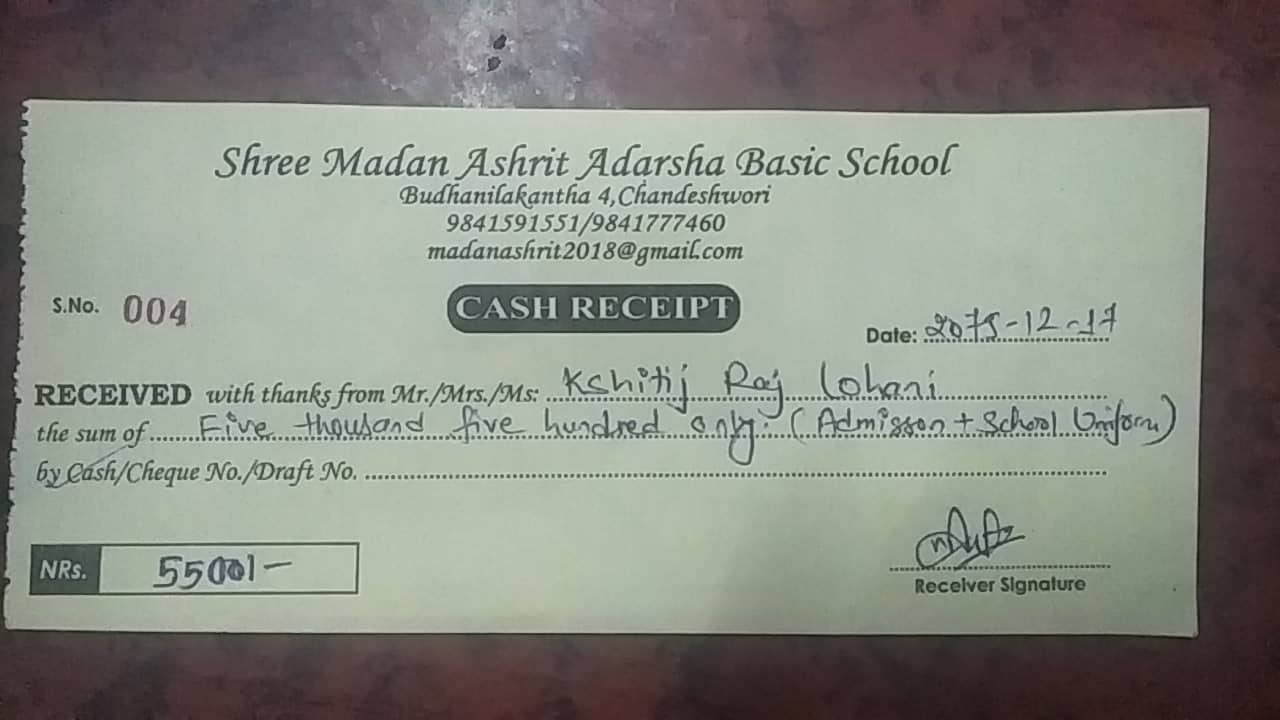 Shree Madan Ashrit Adarsha Basic School
Budhanilakantha 4,Chandeshwori
9841591551/9841777460
madanashrit2018@gmail.com
S.No. 004
CASH RECEIPT
Date: 2075-12-17
RECEIVED with thanks from Mr./Mrs./Ms: Kshitij Raj Lohani
the sum of Five thousand five hundred only. (Admisson + School Uniform)
by Cash/Cheque No./Draft No.
NRs. 5500/-
Receiver Signature